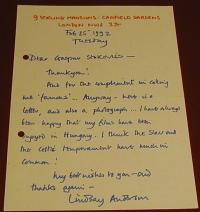 9 STIRLING MANSIONS · CANFIELD GARDENS
LONDON NW6 3
Feb 25th 1992
Tuesday
Dear
Thankyou!
And for the compliment in calling
me 'famous'... Anyway – here is a
letter, and also a photograph... I have always
been happy that my films have been
enjoyed in Hungary. I think the Slav and
the Celtic temperament have much in
common!
My best wishes to you – and
thanks again –
Lindsay Anderson